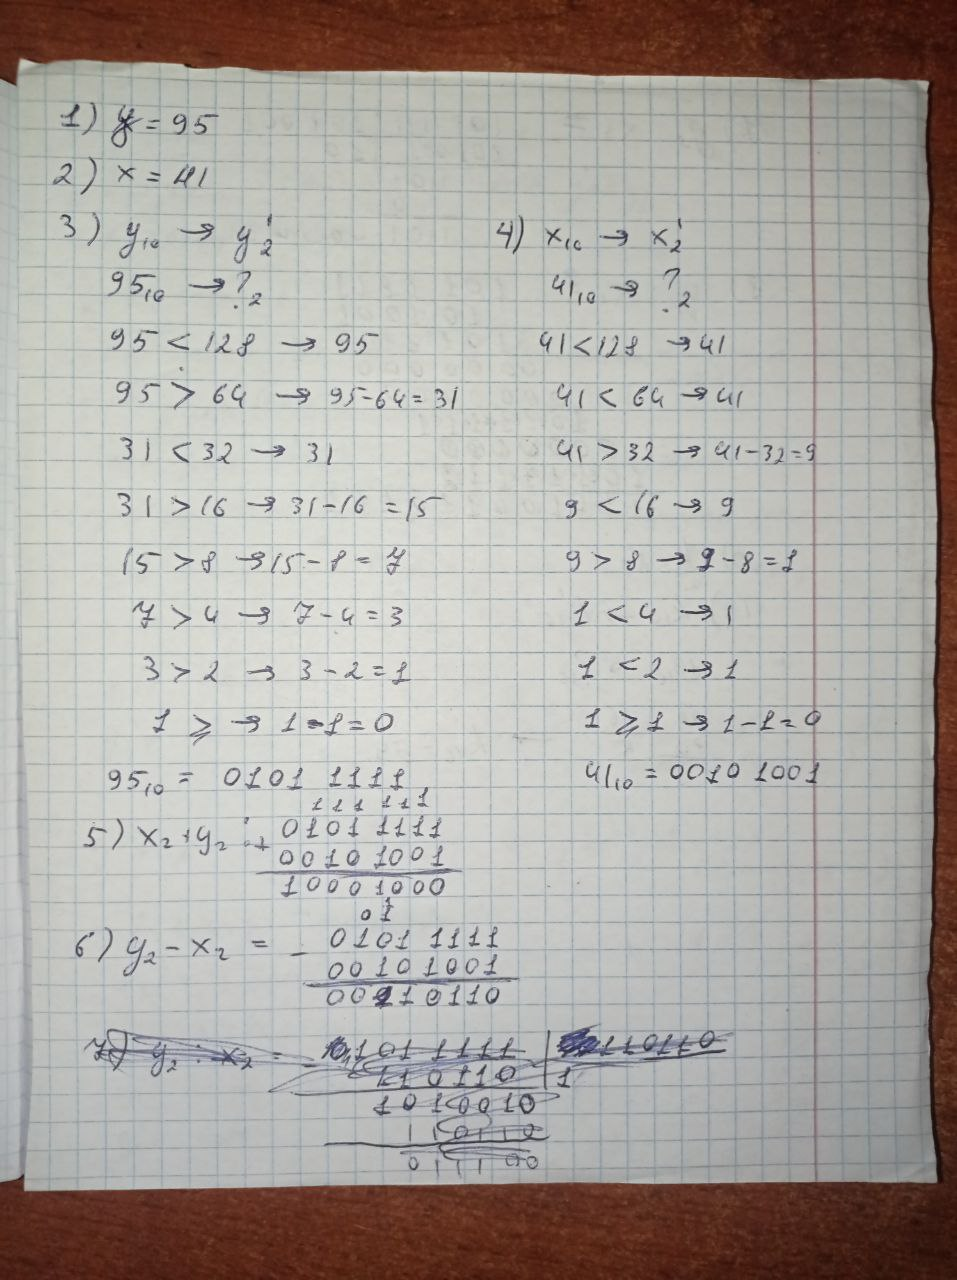 1) y = 95
2) x = 41
3) y₁₀ → y₂'
95₁₀ → ?₂
95 < 128 → 95
95 > 64 → 95-64 = 31
31 < 32 → 31
31 > 16 → 31-16 = 15
15 > 8 → 15-8 = 7
7 > 4 → 7-4 = 3
3 > 2 → 3-2 = 1
1 ⩾ → 1-1 = 0
95₁₀ = 0101 1111
4) x₁₀ → x₂'
41₁₀ → ?₂
41 < 128 → 41
41 < 64 → 41
41 > 32 → 41-32 = 9
9 < 16 → 9
9 > 8 → 9-8 = 1
1 < 4 → 1
1 < 2 → 1
1 ⩾ 1 → 1-1 = 0
41₁₀ = 0010 1001
1 1 1 1 1 1
5) x₂+y₂ : + 0101 1111
0010 1001
10001000
0 1
6) y₂ - x₂ = - 0101 1111
00101001
00110110
7) y₂ : x₂ = 101 1111 110110
110110 1
1010010
110110
011100